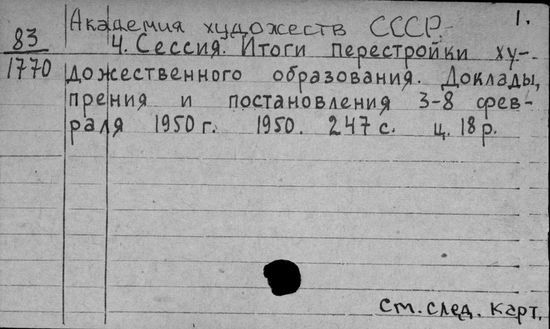 1.
Академия художеств СССР.
83
4. Сессия. Итоги перестройки ху-
1770
дожественного образования. Доклады,
прения и постановления 3-8 фев-
раля 1950 г. 1950. 247 с. ц. 18 р.
См. след. карт.